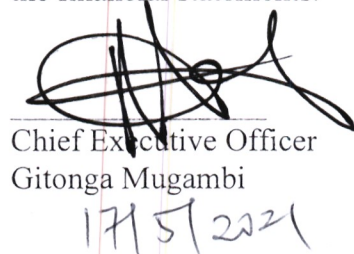 Chief Executive Officer
Gitonga Mugambi
17/5/2021